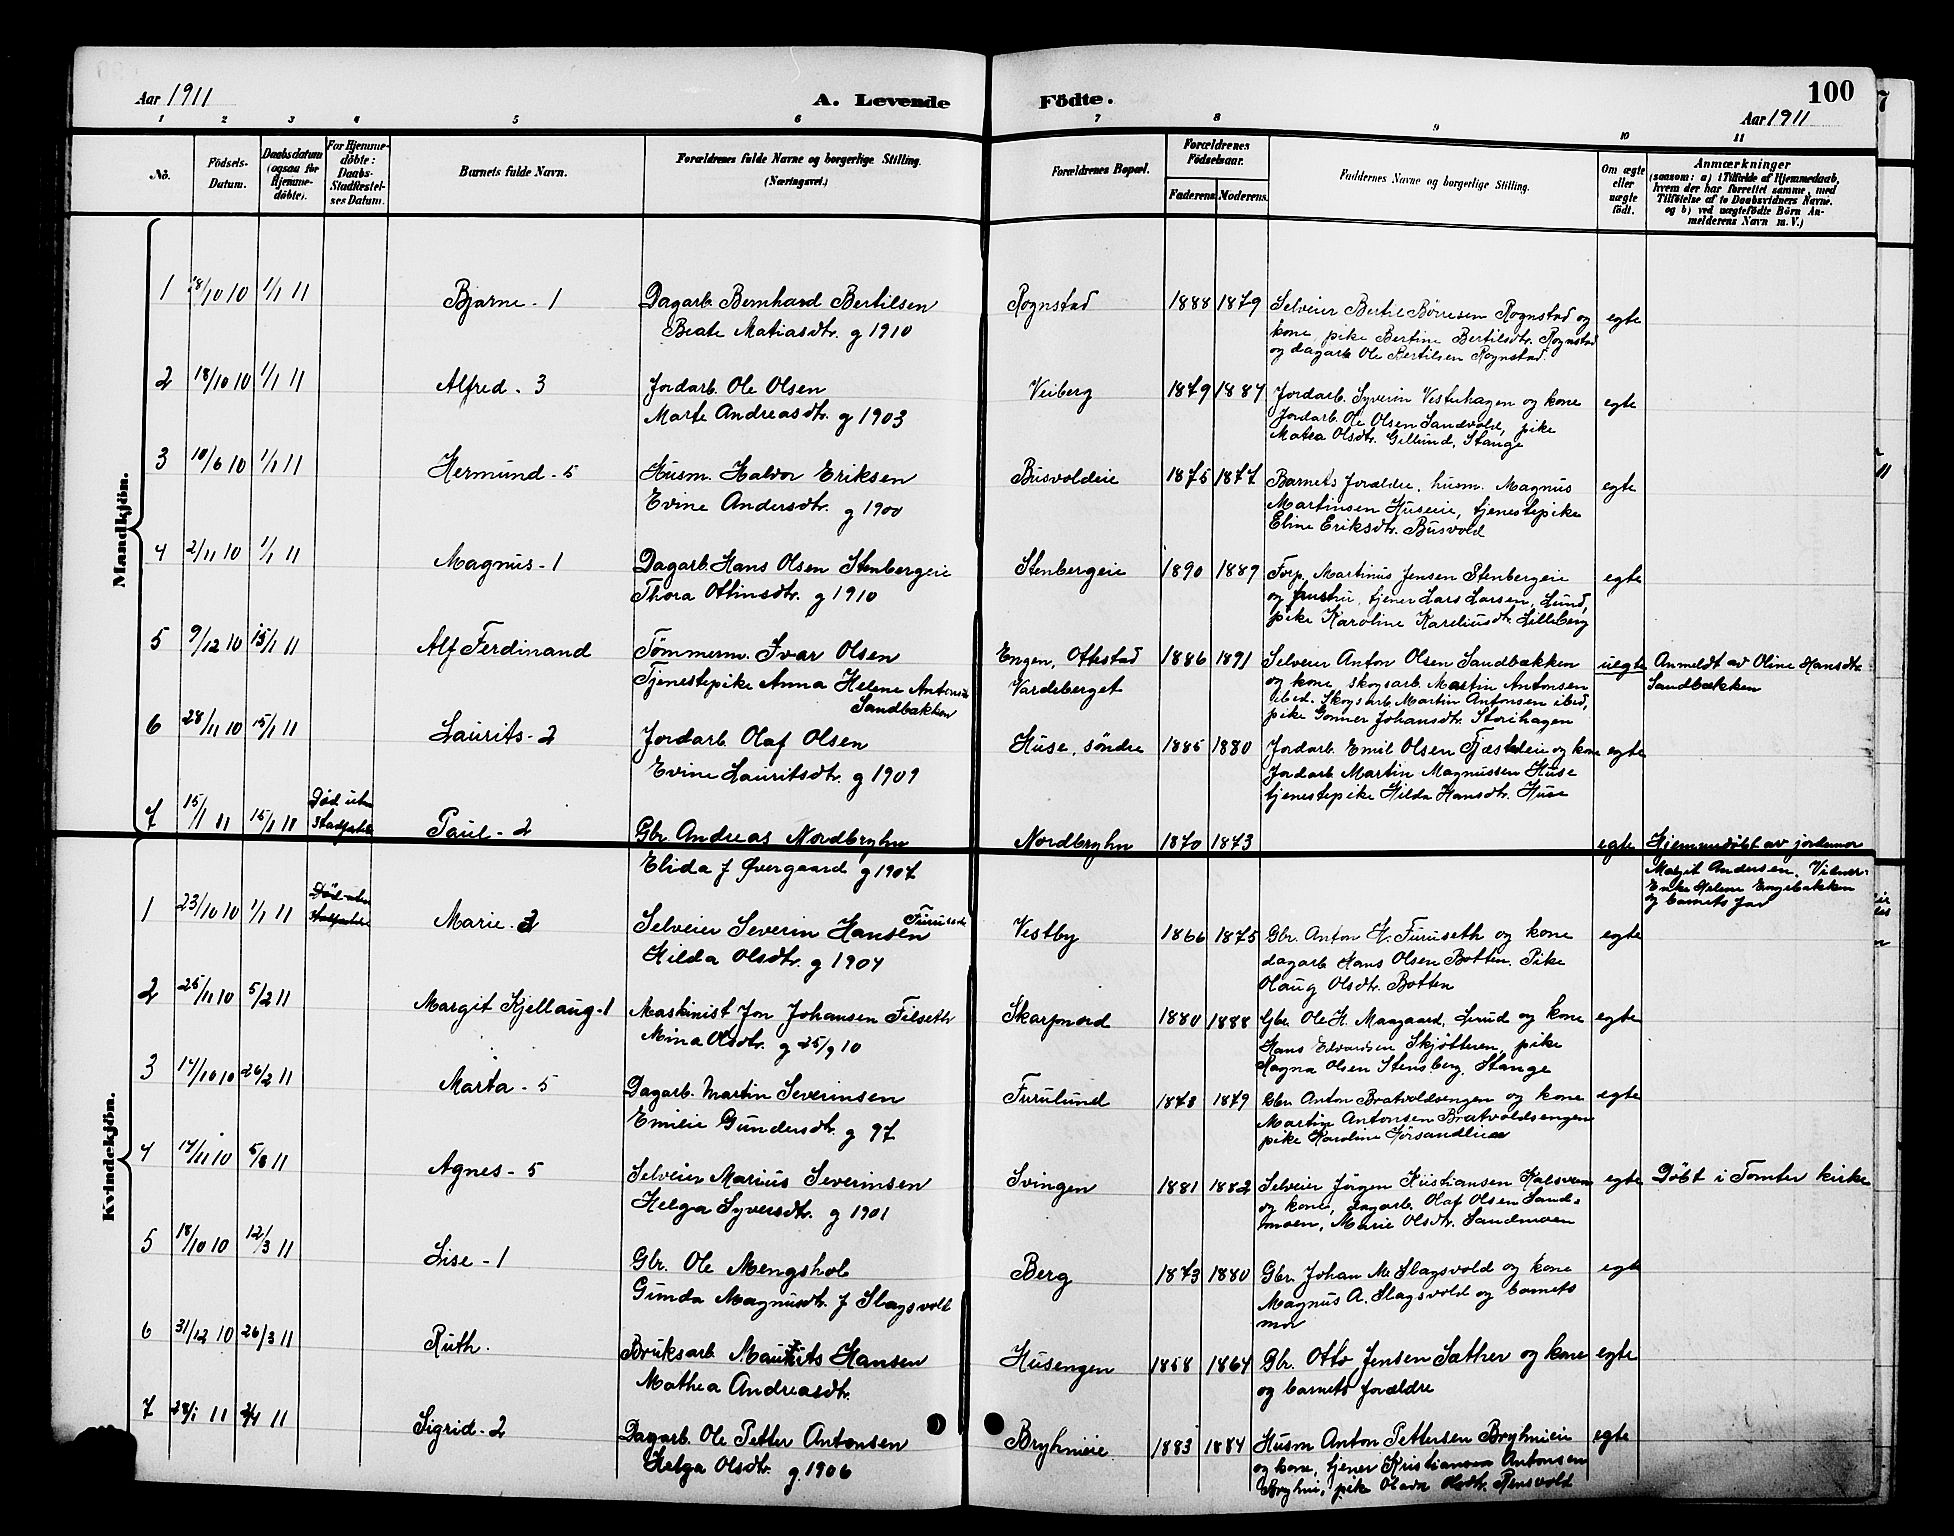 100
Aar 1911 A. Levende Födte. Aar 1911
1 2 3 4 5 6 7 8 9 10 11
No. Födsels-Datum. Daabsdatum (ogsaa for Hjemmedöbte). For Hjemmedöbte: Daabs-Stadfæstelses Datum. Barnets fulde Navn. Forældrenes fulde Navne og borgerlige Stilling. (Næringsvei.) Forældrenes Bopæl. Forældrenes Födselsaar. Faderens Moderens. Faddernes Navne og borgerlige Stilling. Om ægte eller uægte födt. Anmærkninger (saasom: a) i Tilfælde af Hjemmedaab, hvem der har forrettet samme, med Tilföielse af to Daabsvidners Navne. og b) ved uægtefödte Börn Anmelderens Navn m. V.)
Mandkjön.
1 18/10 10 1/1 11 Bjarne - 1 Dagarb. Bernhard Bertilsen Rognstad 1888 1879 Selveier Bertil Børresen Rognstad og egte
Beate Matiasdtr. g 1910 kone, pike Bertine Bertilsdtr. Rognstad
og dagarb. Ole Bertilsen Rognstad
2 18/10 10 1/1 11 Alfred - 3 Jordarb. Ole Olsen Veiberg 1879 1887 Jordarb. Syverin Vesterhagen og kone egte
Marte Andreasdtr. g 1903 Jordarb. Ole Olsen Sandvold, pike
Matea Olsdtr. Gillund, Stange
3 10/6 10 1/1 11 Hermund - 5 Husm. Halvor Eriksen Busvoldeie 1875 1877 Barnets forældre, husm. Magnus egte
Evine Andersdtr. g 1900 Martinsen Huseie, tjenestepike
Eline Eriksdtr. Busvold
4 2/11 10 1/1 11 Magnus - 1 Dagarb. Hans Olsen Stenbergeie Stenbergeie 1890 1889 Forp. Martinus Jensen Stenbergeie egte
Thora Ottinsdtr. g 1910 og hustru, tjener Lars Larsen, Lund,
pike Karoline Kareliusdtr. Lilleberg
5 9/12 10 15/1 11 Alf Ferdinand Tømmerm. Ivar Olsen Engen, Ottestad 1886 1891 Selveier Anton Olsen Sandbækken uegte Anmeldt av Oline Hansdtr.
Tjenestepike Anna Helene Antonsdtr. Vardeberget og kone, skogsarb. Martin Antonsen Sandbækken
Sandbækken ibid. Skogsarb. Martin Antonsen ibid,
pike Gonner Johansdtr. Storihagen
6 28/11 10 15/1 11 Laurits - 2 Jordarb. Olaf Olsen Huse, søndre 1885 1880 Jordarb. Emil Olsen Fjæsteie og kone egte
Evine Lauritsdtr. g 1909 Jordarb. Martin Magnussen Huse
tjenestepike Hilda Hansdtr. Huse
7 15/1 11 15/1 11 Død uten Stadfæstelse Paul - 2 Gbr. Andreas Nordbryhn Nordbryhn 1870 1873 egte Hjemmedøbt av jordemor
Elida f Øvergaard g 1907 Margit Andersen. Vidner:
Enke Helene Engebakken
og barnets far
Kvindekjön.
1 23/10 10 1/1 11 Død uten Stadfæstelse Marie - 3 Selveier Severin Hansen Furuseth Vestby 1866 1875 Gbr. Anton H. Furuseth og kone egte
Hilda Olsdtr. g 1904 dagarb. Hans Olsen Botten. Pike
Olaug Olsdtr. Botten
2 25/11 10 5/2 11 Margit Kjellaug - 1 Maskinist Jon Johansen Filseth Skarpnord 1880 1888 Gbr. Ole H. Maagaard, Lerud og kone egte
Mina Olsdtr. g 25/9 10 Hans Edvardsen Skjøtteren, pike
Magna Olsen Stensberg, Stange
3 14/10 10 26/2 11 Marta - 5 Dagarb. Martin Severinsen Furulund 1878 1879 Gbr. Anton Bratvoldsengen og kone egte
Emilie Gundersdtr. g 97 Martin Antonsen Bratvoldsengen
pike Karoline Hørsandlien
4 17/11 10 5/3 11 Agnes - 5 Selveier Marius Severinsen Svingen 1881 1882 Selveier Jørgen Kristiansen Kalsveen egte Døbt i Tomter kirke
Helga Syversdtr. g 1901 og kone, dagarb. Olaf Olsen Sand-
moen, Marie Olsdtr. Sandmoen
5 18/10 10 12/3 11 Lise - 1 Gbr. Ole Mengshol Berg 1873 1880 Gbr. Johan M. Slagsvold og kone egte
Gunda Magnusdtr. f Slagsvold Magnus A. Slagsvold og barnets
mor
6 31/12 10 26/3 11 Ruth. Bruksarb. Mauritz Hansen Husengen 1858 1864 Gbr. Otto Jensen Sæther og kone egte
Mathea Andreasdtr. og barnets forældre
7 28/1 11 2/4 11 Sigrid - 2 Dagarb. Ole Petter Antonsen Bryhnieie 1883 1884 Husm Anton Pettersen Bryhnieie egte
Helga Olsdtr. g 1906 og kone, tjener Kristian Antonsen
Bryhni, pike Olava Olsdtr. Rensvold